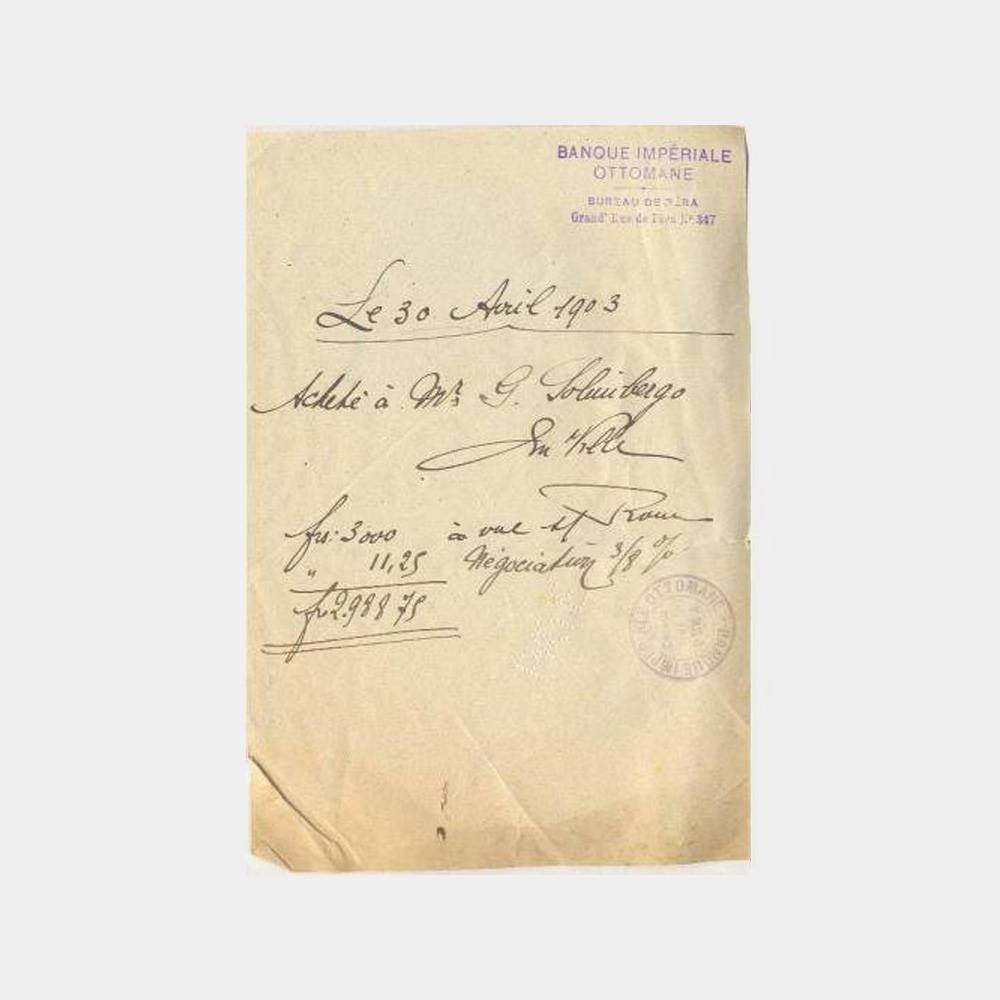 BANQUE IMPÉRIALE
OTTOMANE
BUREAU DE PÉRA
Grand' Rue de Péra N° 347
Le 30 Avril 1903
Acheté à Mr G.
En Ville
frs: 3000 à vue s/ Rome
" 11,25 Négociation 3/8 %
fr 2.988 75
OTTOMANE BANQUE IMPÉRIALE